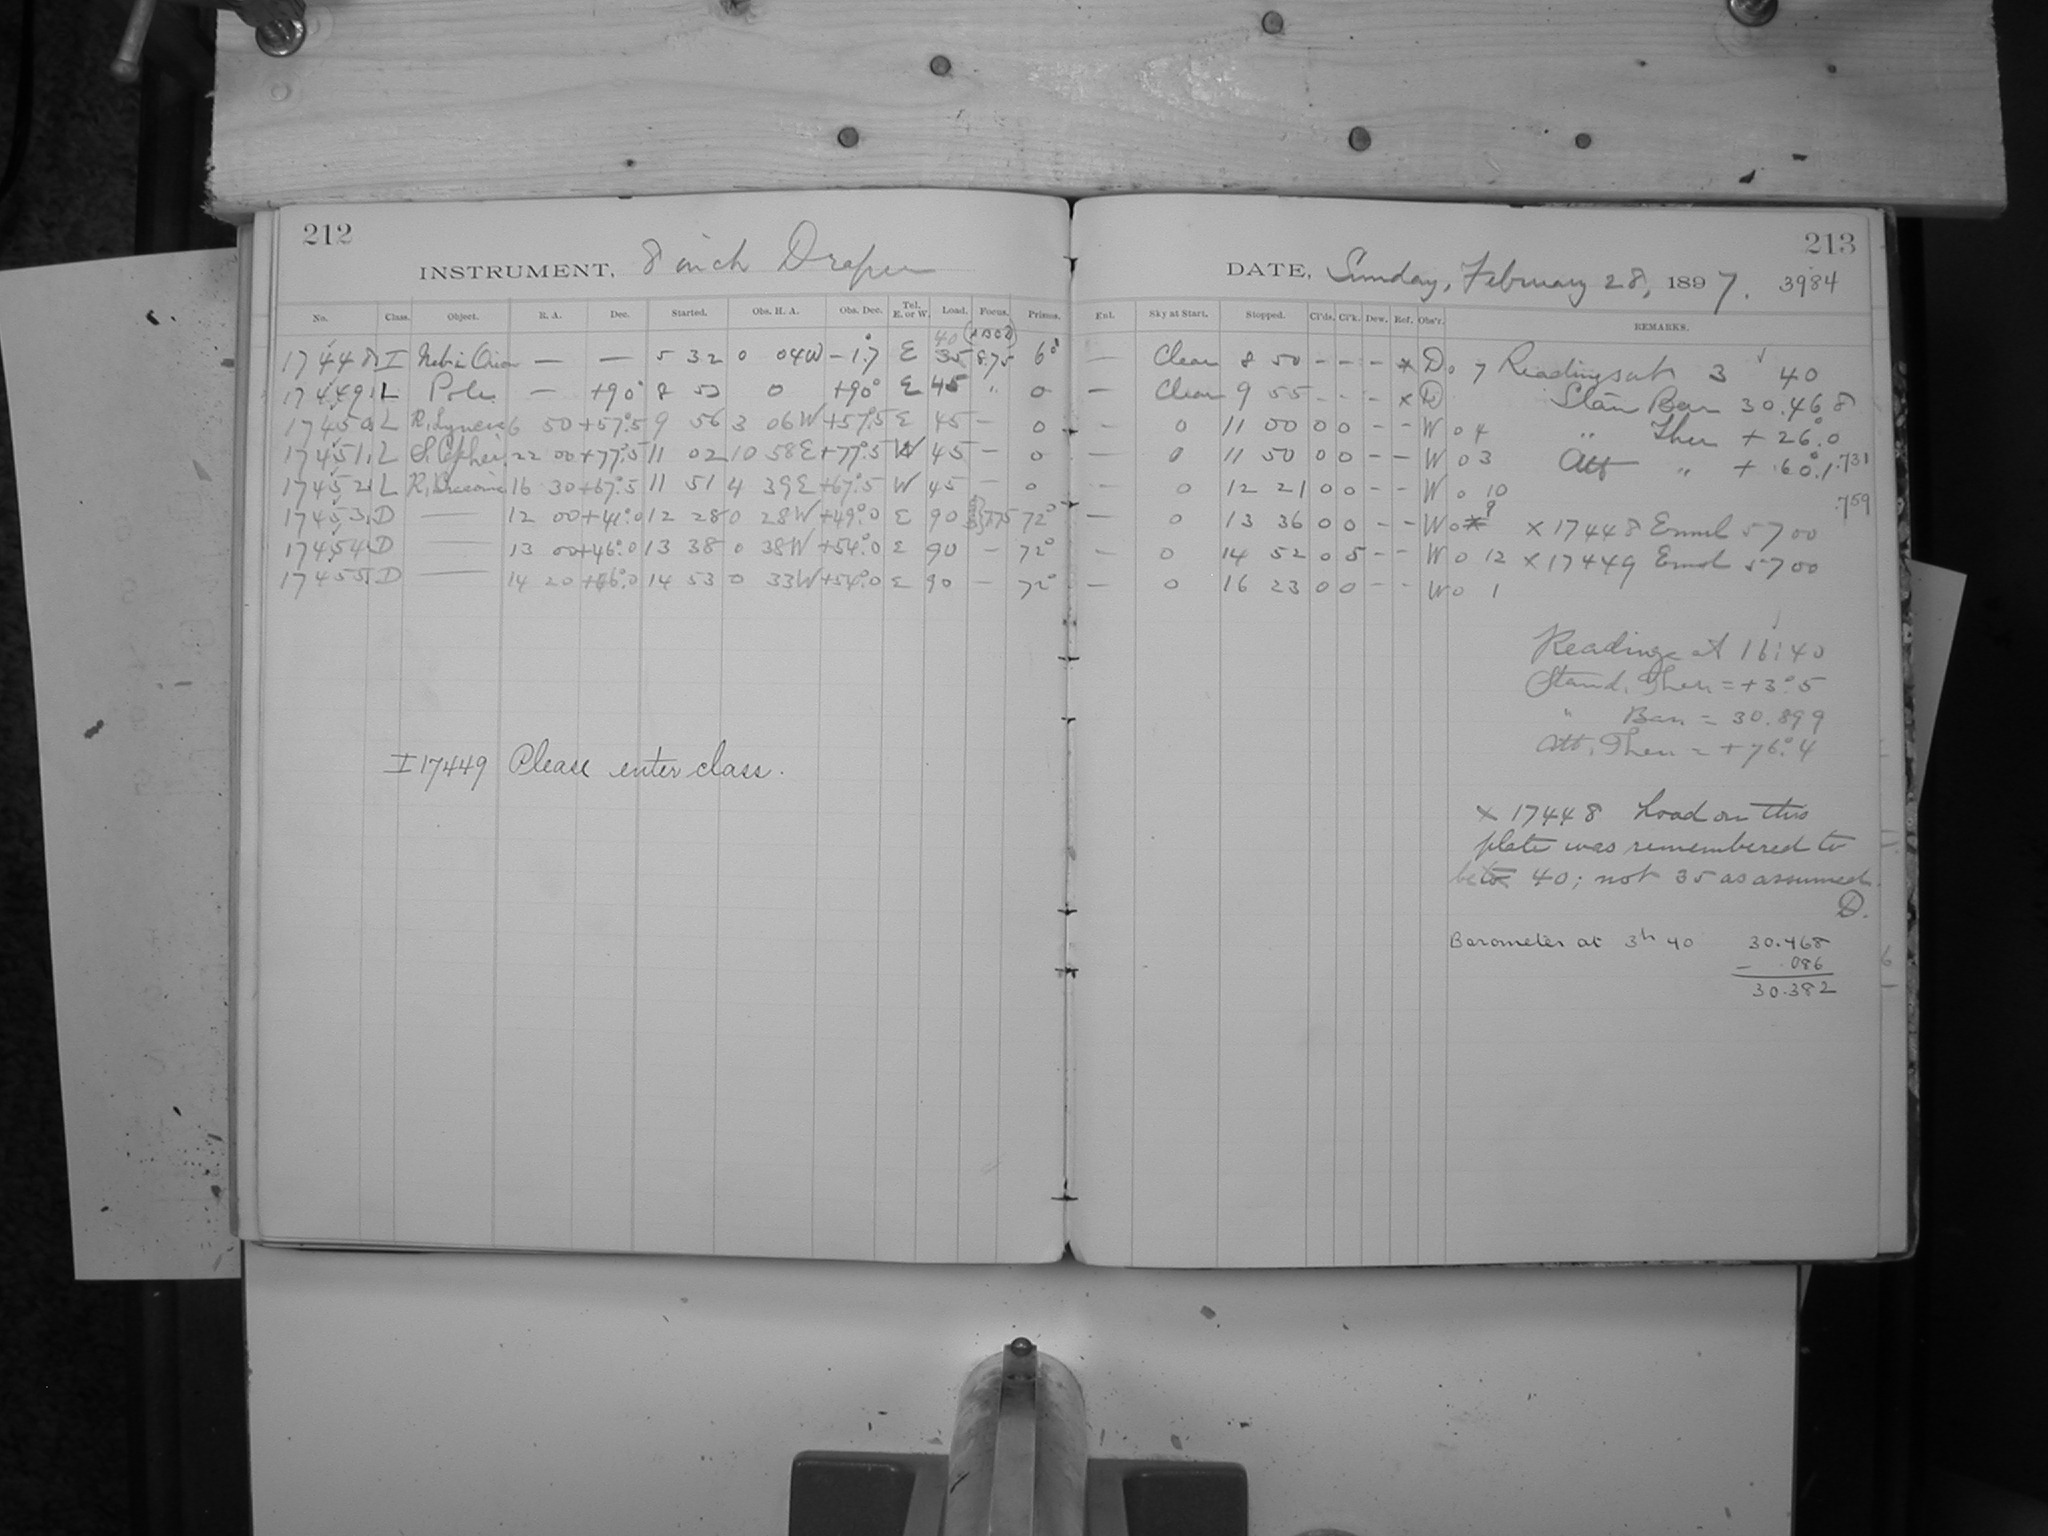 212
INSTRUMENT, 8 inch Draper
No. Class. Object. R. A. Dec. Started. Obs. H. A. Obs. Dec. Tel. E. or W. Load. Focus. Prisms.
17448 I Neb. in Orion — — 5 32 0 04W -1.°7 E 35 40 8.75 6°
17449 L Pole — +90° 8 53 0 +90° E 45 " 0
17450 L R. Lyncis 6 50 +57.°5 9 56 3 06W +57.°5 E 45 — 0
17451 L S. Cephei 22 00 +77.°5 11 02 10 58E +77.°5 W 45 — 0
17452 L R. Draconis 16 30 +67.°5 11 51 4 39E +67.°5 W 45 — 0
17453 D — 12 00 +41.°0 12 28 0 28W +49.°0 E 90 7.75 72°
17454 D — 13 00 +46.°0 13 38 0 38W +54.°0 E 90 — 72°
17455 D — 14 20 +46.°0 14 53 0 33W +54.°0 E 90 — 72°
I 17449 Please enter class.
213
DATE, Sunday, February 28, 1897. 3984
Enl. Sky at Start. Stopped. Cl'ds. Cl'k. Dew. Ref. Obs'r. REMARKS.
— Clear 8 50 - - - x D 0 7 Readings at 3 40
— Clear 9 55 - - - x D Stan Bar 30.468
— 0 11 00 0 0 - - W 0 4 " Ther + 26.°0
— 0 11 50 0 0 - - W 0 3 Att " + 60.°1 .731
— 0 12 21 0 0 - - W 0 10
.759
— 0 13 36 0 0 - - W 0 9 x 17448 Emul 5700
— 0 14 52 0 5 - - W 0 12 x 17449 Emul 5700
— 0 16 23 0 0 - - W 0 1
Readings at 16:40
Stand. Ther. = +3.°5
" Bar. = 30.899
Att. Ther. = +76.°4
x 17448 Load on this
plate was remembered to
be 40; not 35 as assumed.
D.
Barometer at 3h 40 30.468
- .086
30.382